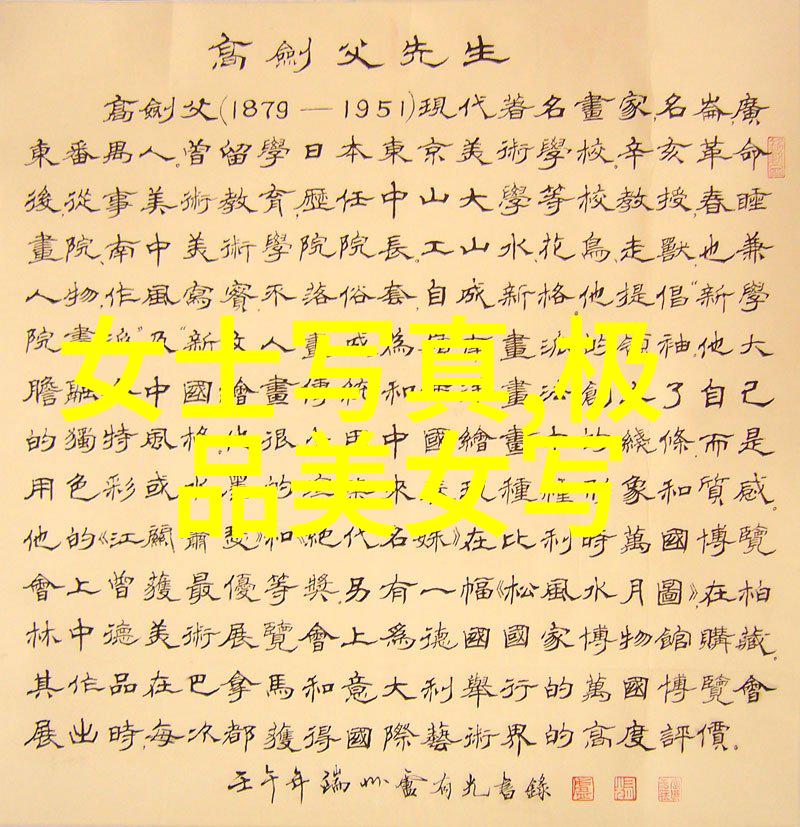 高劍父先生
高劍父(1879—1951)現代著名畫家,名崙,廣
東番禺人。曾留學日本東京美術學校,辛亥革命
後,從事美術教育,歷任中山大學等校教授,春睡
畫院、南中美術學院院長。工山水、花鳥、走獸,也兼
人物,作風寫實,不落俗套,自成新格。他提倡"新學
女士写真,极
院畫派"及"新文人畫"成為 有 畫派的領袖。他大
膽融 中國繪畫傳統和 畫法創 了自己
的獨特風格。 很 用中國繪畫 的綫條,而是
品美女写
用色彩或水墨的 來表現種種形象和質感。
他的《江關蕭瑟》和《絕代名姝》在比利時萬國博覽
會上曾獲最優等獎。另有一幅《松風水月圖》,在柏
林中德美術展覽會上為德國國家博物館購藏。
其作品在巴拿馬和意大利舉行的萬國博覽會
展出時,每次都獲得國際藝術界的高度評價。
壬午年端州盧有光書錄